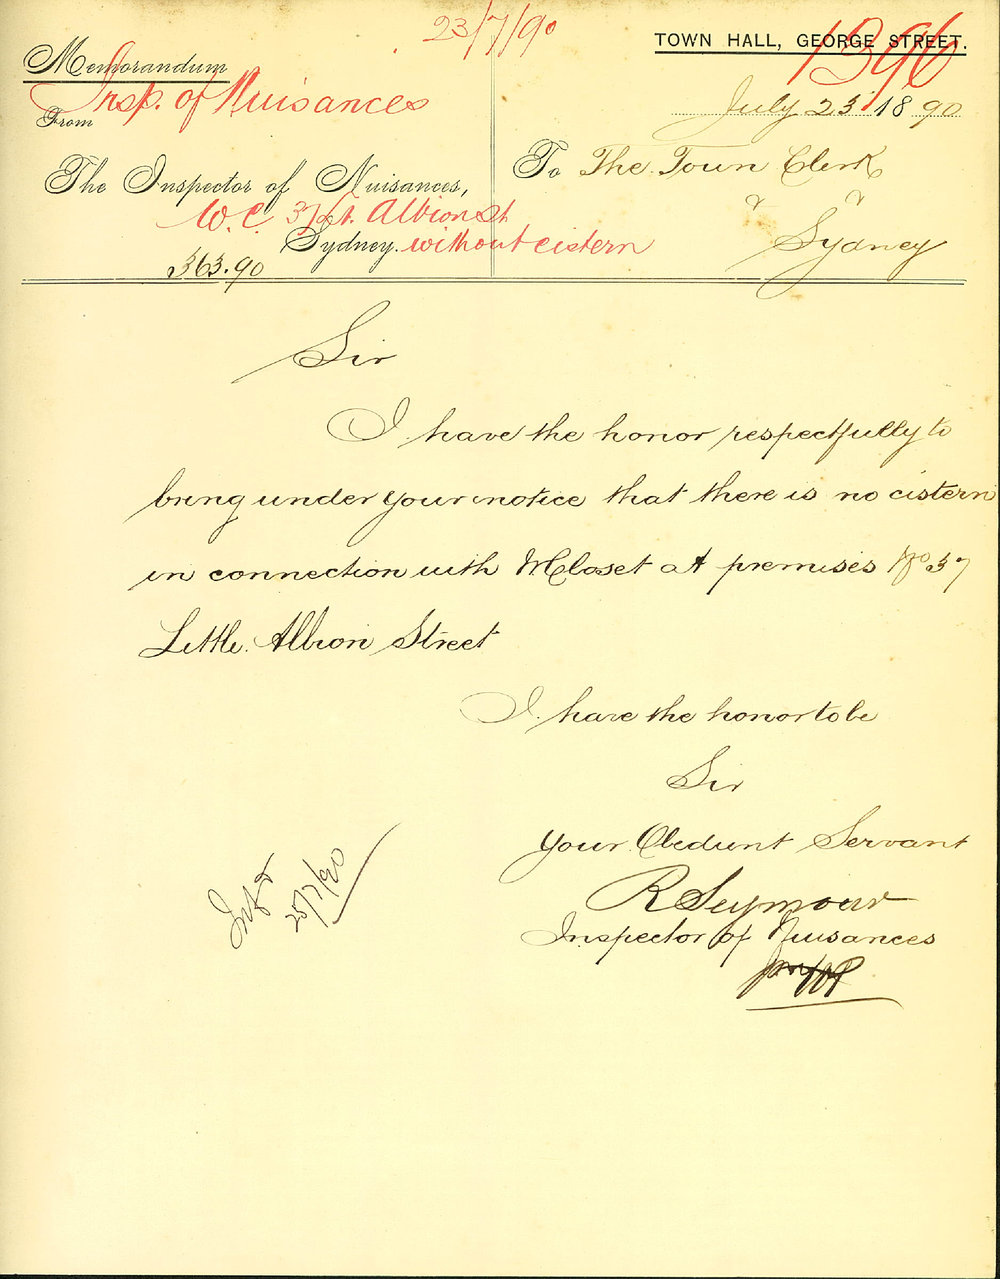 23/7/90
TOWN HALL, GEORGE STREET.
1396
Memorandum
Insp. of Nuisances
From
July 23 1890
The Inspector of Nuisances,
To The Town Clerk
W.C. 37 Lt. Albion St
Sydney. without cistern
Sydney
363.90
Sir
I have the honor respectfully to
bring under your notice that there is no cistern
in connection with W Closet at premises No 37
Little Albion Street
I have the honor to be
Sir
Your Obedient Servant
R Seymour
Inspector of Nuisances
25/7/90